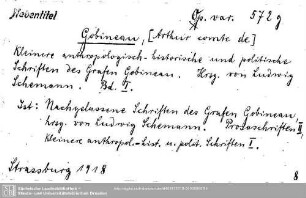 Nebentitel Op. var. 572 g
Gobineau, [Arthur comte de]
Kleinere anthropologisch-historische und politische
Schriften des Grafen Gobineau. Hrsg. von Ludwig
Schemann. Bd. I.
Ist: Nachgelassene Schriften des Grafen Gobineau
hrsg. von Ludwig Schemann. Prosaschriften II,
kleinere anthropol.-hist. u. polit. Schriften I.
Strassburg 1918 8